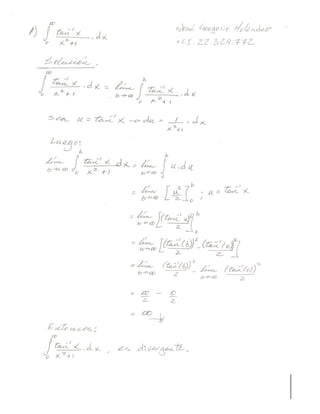 A) ∫₀^∞ tan⁻¹ x / x²+1 · dx
C.I. 22.329.772
Solución.
∫₀^∞ tan⁻¹ x / x²+1 · dx = lim b→∞ ∫₀^b tan⁻¹ x / x²+1 · dx
Sea u = tan⁻¹ x → du = 1 / x²+1 · dx
Luego:
lim b→∞ ∫₀^b tan⁻¹ x / x²+1 dx = lim b→∞ ∫₀^b u · du
= lim b→∞ [u²/2]₀^b ; u = tan⁻¹ x
= lim b→∞ [(tan⁻¹ x)²/2]₀^b
= lim b→∞ [(tan⁻¹(b))²/2 - (tan⁻¹(0))²/2]
= lim b→∞ (tan⁻¹(b))²/2 - lim b→∞ (tan⁻¹(0))²/2
= ∞/2 - 0/2
= ∞
Entonces:
∫₀^∞ tan⁻¹ x / x²+1 · dx, es divergente.